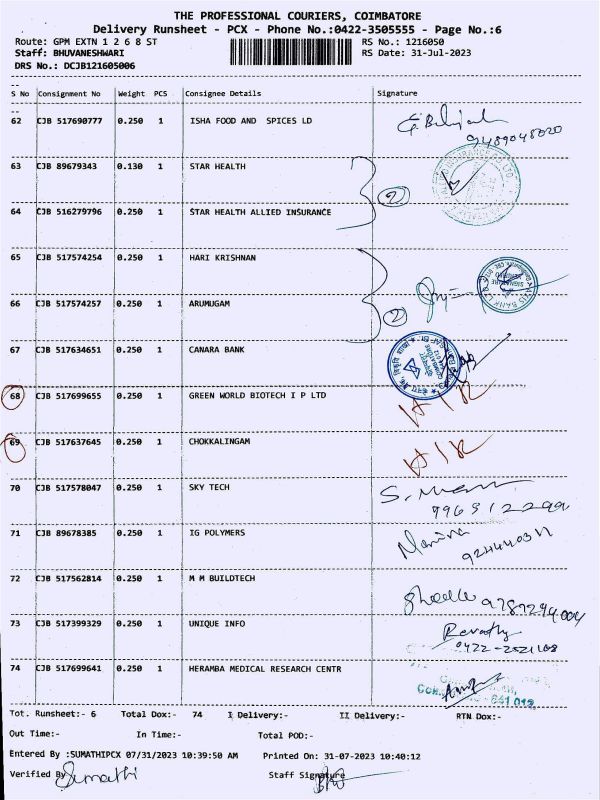 THE PROFESSIONAL COURIERS, COIMBATORE
Delivery Runsheet - PCX - Phone No.:0422-3505555 - Page No.:6
Route: GPM EXTN 1 2 6 8 ST RS No.: 1216050
Staff: BHUVANESHWARI RS Date: 31-Jul-2023
DRS No.: DCJB121605006
S No Consignment No Weight PCS Consignee Details Signature
62 CJB 517690777 0.250 1 ISHA FOOD AND SPICES LD
9489048020
63 CJB 89679343 0.130 1 STAR HEALTH
2
64 CJB 516279796 0.250 1 STAR HEALTH ALLIED INSURANCE
65 CJB 517574254 0.250 1 HARI KRISHNAN
66 CJB 517574257 0.250 1 ARUMUGAM
2
67 CJB 517634651 0.250 1 CANARA BANK
68 CJB 517699655 0.250 1 GREEN WORLD BIOTECH I P LTD
69 CJB 517637645 0.250 1 CHOKKALINGAM
70 CJB 517578047 0.250 1 SKY TECH
71 CJB 89678385 0.250 1 IG POLYMERS
72 CJB 517562814 0.250 1 M M BUILDTECH
9789294004
73 CJB 517399329 0.250 1 UNIQUE INFO Revathy
0422-2521168
74 CJB 517699641 0.250 1 HERAMBA MEDICAL RESEARCH CENTR
641 012
Tot. Runsheet:- 6 Total Dox:- 74 I Delivery:- II Delivery:- RTN Dox:-
Out Time:- In Time:- Total POD:-
Entered By :SUMATHIPCX 07/31/2023 10:39:50 AM Printed On: 31-07-2023 10:40:12
Verified By Sumathi Staff Signature